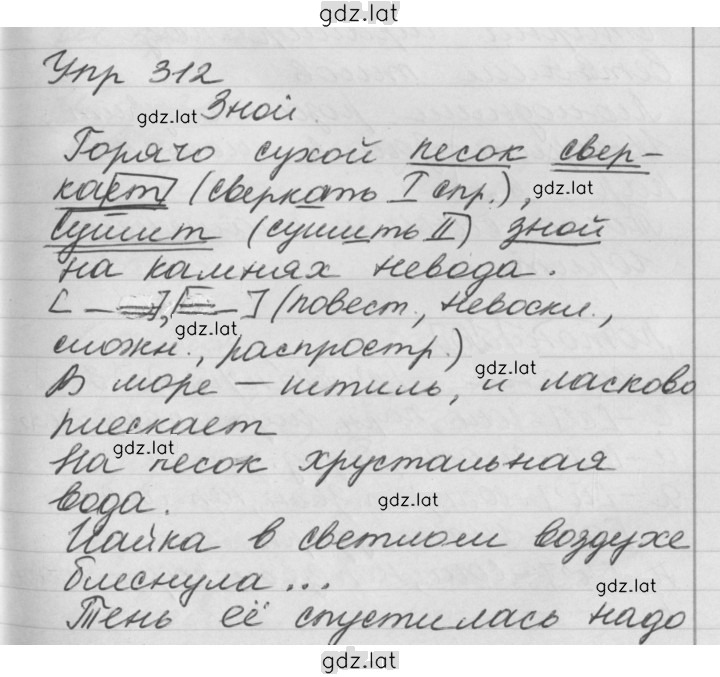 gdz.lat
Упр 312
gdz.lat
Зной.
Горячо сухой песок свер-
кает (сверкать I спр.), gdz.lat
Сушит (сушить II) зной
на камнях невода.
[ _ = ], [ = _ ] (повест., невоскл.,
gdz.lat
сложн., распростр.)
В море – штиль, и ласково
gdz.lat
плескает
gdz.lat
На песок хрустальная
вода.
gdz.lat
Чайка в светлом воздухе
блеснула...
gdz.lat
Тень её спустилась надо
gdz.lat